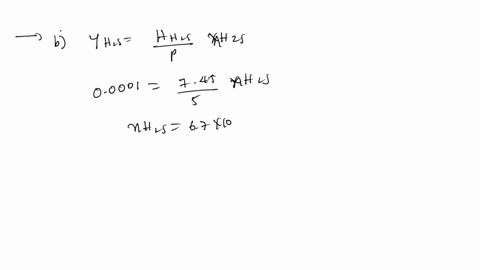 → b) y H2S = H H2S / P x H2S
0.0001 = 7.45 / 5 x H2S
x H2S = 6.7 x 10